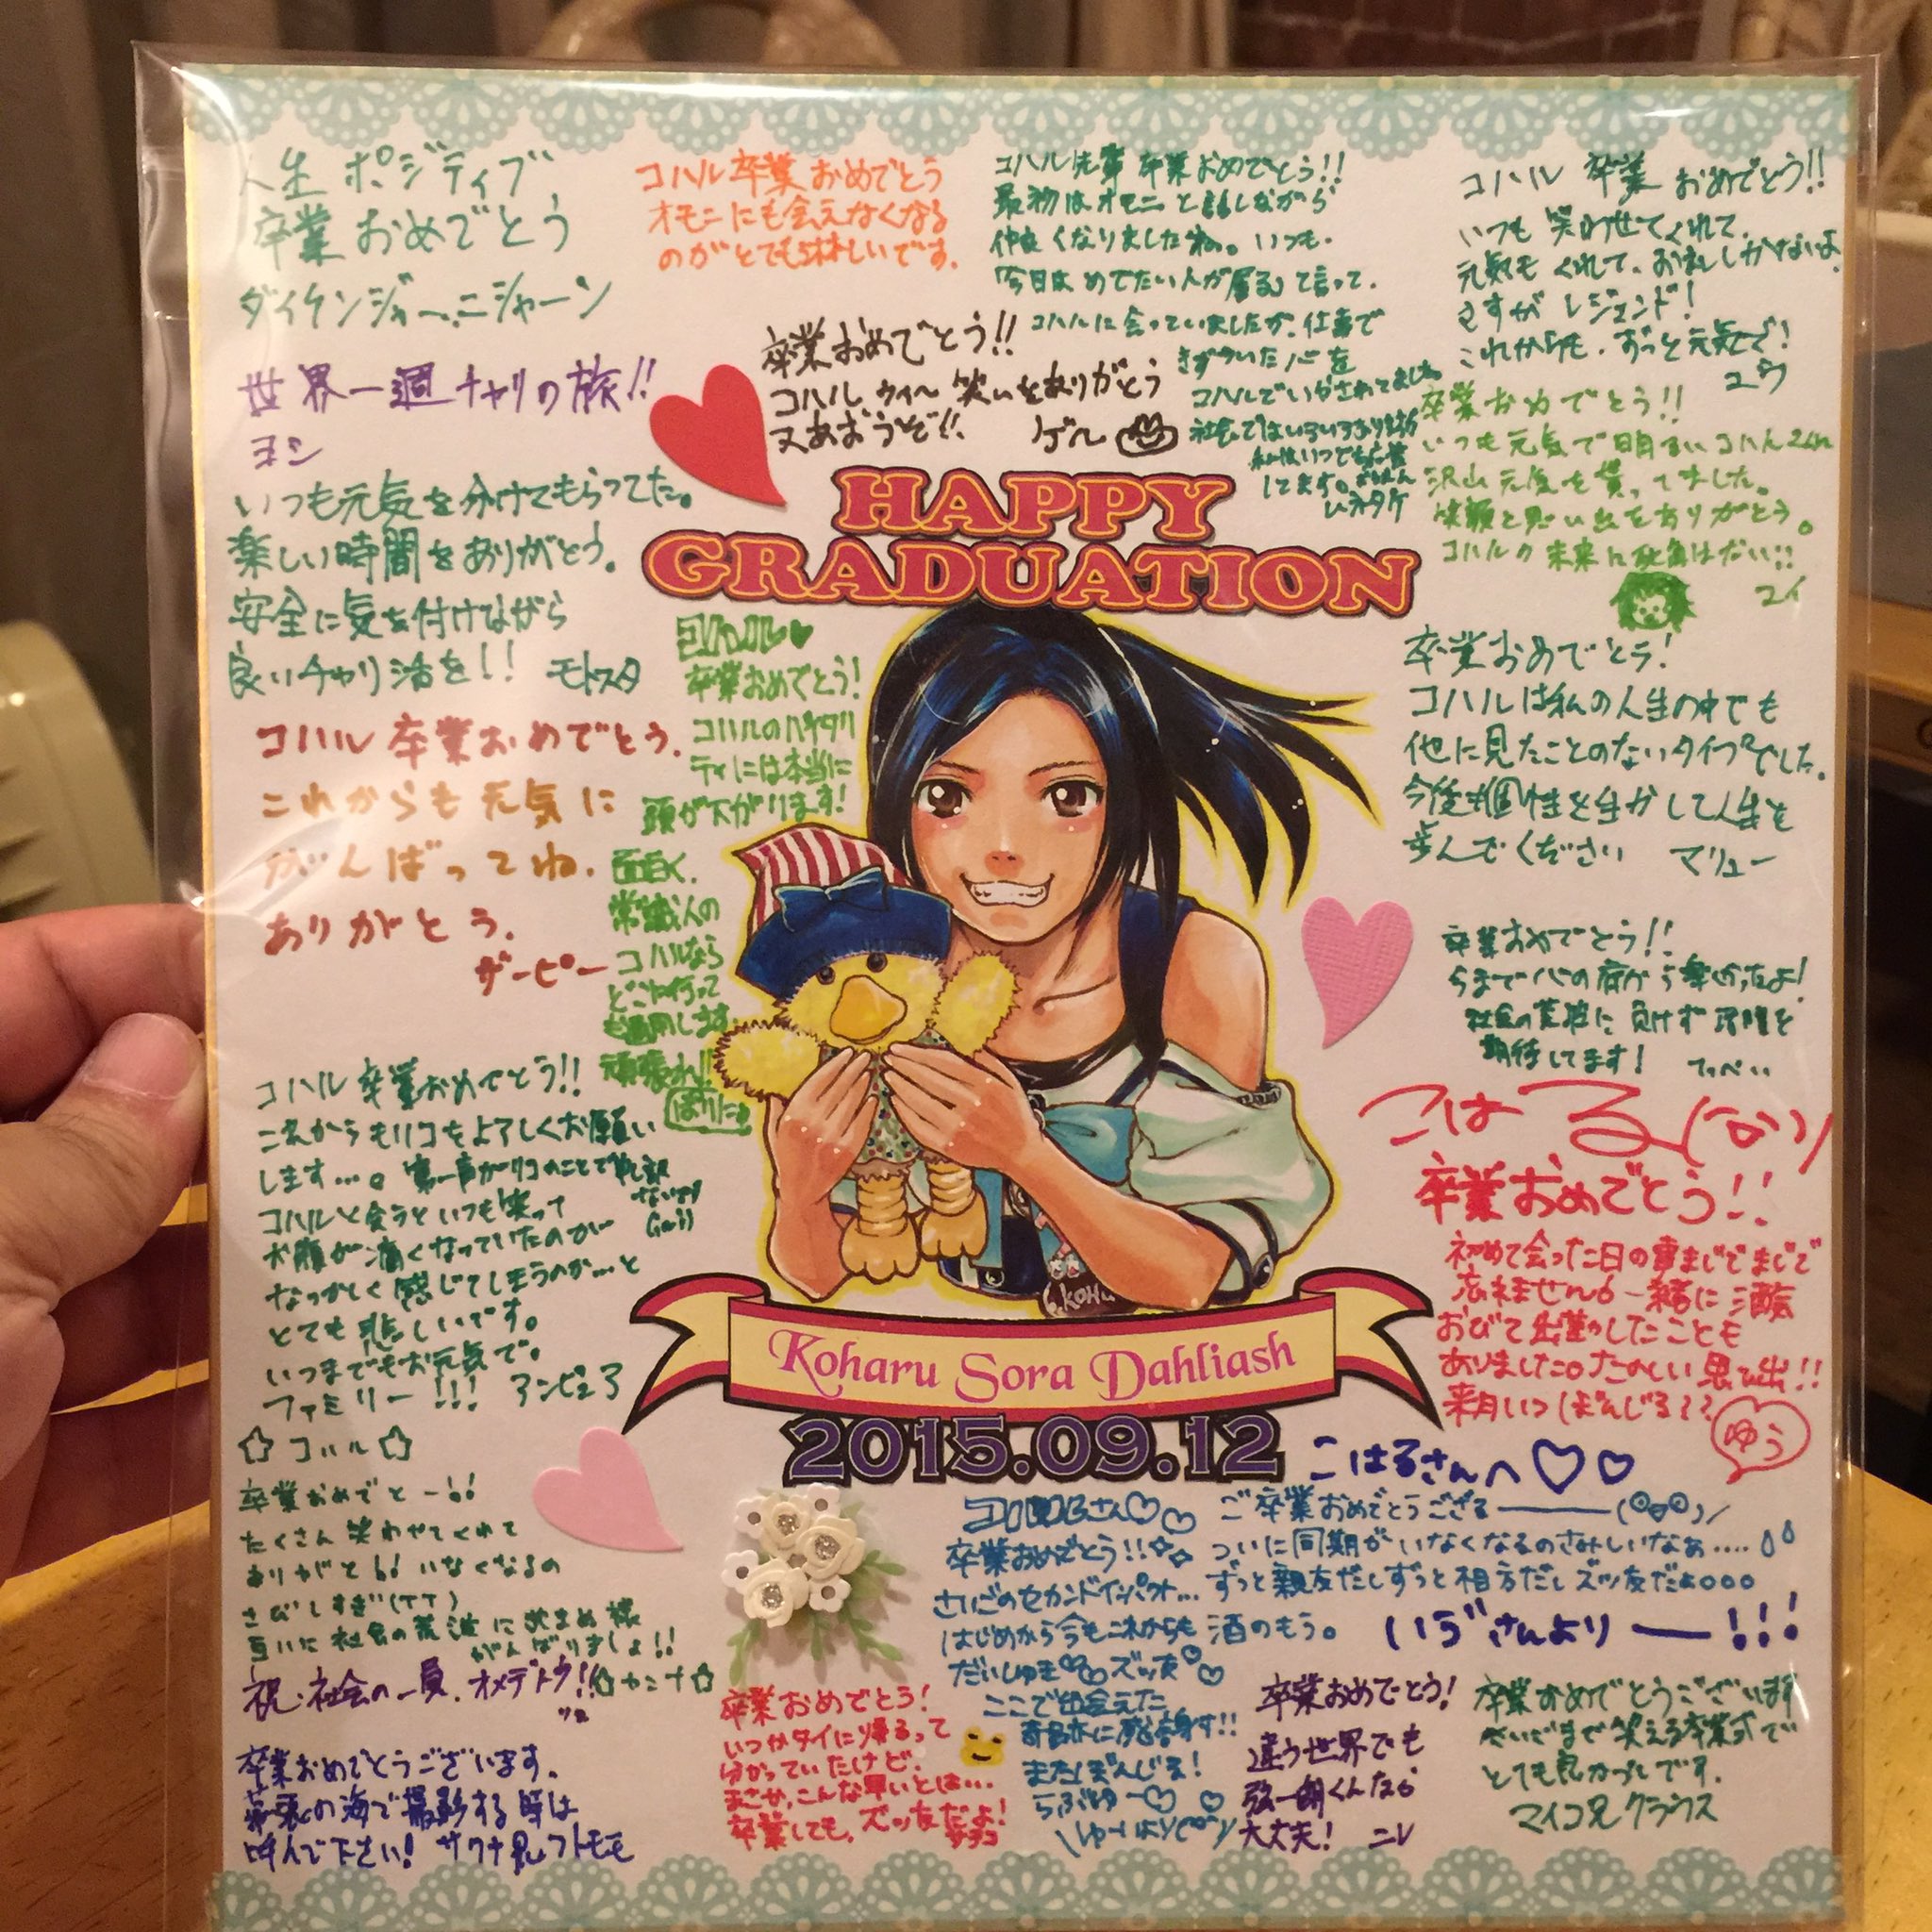 人生 ポジティブ
卒業おめでとう
ダイケンジャーニシャーン
世界一週チャリの旅!!
ヨシ
いつも元気を分けてもらってた。
楽しい時間をありがとう。
安全に気を付けながら
良いチャリ活を!! モトスタ
コハル 卒業おめでとう.
これからも元気に
がんばってね.
ありがとう.
ザーピー
コハル 卒業おめでとう!!
これからもリコをよろしくお願い
します…。
コハルと会うといつも笑って
お腹が痛くなっていたのが
なつかしく感じてしまうのか…と
とても悲しいです。
いつまでもお元気で。
ファミリー!!! アンピュア
☆コハル☆
卒業おめでとー!!
たくさん笑わせてくれて
ありがと!! いなくなるの
さびしすぎ(TT)
互いに社会の荒波に
がんばりましょ!!
☆カンナ☆
祝・社会の一員. オメデトウ!!
卒業おめでとうございます。
幕張の海で撮影する時は
呼んで下さい!
コハル卒業おめでとう
オモニにも会えなくなる
のがとても淋しいです.
コハル先輩 卒業おめでとう!!
最初はオモニと話しながら
仲良くなりましたね。いつも.
「今日は めでたい人が居る」て言って.
コハルに会っていましたが.仕事で
きずついた心を
コハルでいかされてました
コハル 卒業 おめでとう!!
いつも 笑わせてくれて.
元気も くれて、お礼しかないよ.
さすが レジェンド!
これからも、ずっと元気で!
ユウ
卒業おめでとう!!
コハル ウィ〜 笑いをありがとう
又あおうぞ!! ゲル
卒業おめでとう!!
いつも元気で明るいコハルくん
沢山元気を貰ってました。
笑顔と思い出をありがとう。
コハルの未来に死角はない!!
ユイ
HAPPY
GRADUATION
コハル♥
卒業おめでとう!
コハルのバイタリ
ティには本当に
頭が下がります!
面白く.
常識人の
コハルなら
どこに行って
も通用します.
頑張れ!!
卒業おめでとう!
コハルは私の人生の中でも
他に見たことのないタイプでした.
今後も個性を生かして人生を
歩んでください マリュー
卒業おめでとう!!
今まで心の底から楽しかったよ!
社会の荒波に負けず 活躍を
期待してます! てっぺい
こはる
卒業おめでとう!!
初めて会った日の事まじでまじで
忘れません。一緒に酒
おびて出勤したことも
ありました。たのしい思い出!!
来月いつしぼんじる??
ゆう
KOHA
Koharu Sora Dahliash
2015.09.12
こはるさんへ♡♡
ご卒業おめでとうござる
ついに同期がいなくなるのさみしいなぁ....
ずっと親友だしずっと相方だしズッ友だよ○○○
いづさんより――!!!
コハルさん♡♡
卒業おめでとう!!
さいごのセカンドインパクト...
はじめから今もこれからも 酒のもう。
だいしゅき ズッ友
ここで出会えた
奇跡に
またしぼんじぇ!
らぶゆ〜♡ ♡
卒業おめでとう!
いつかタイに帰るって
分かっていたけど.
まさか、こんな早いとは…
卒業しても、ズッ友だよ!
サチコ
卒業おめでとう!
違う世界でも
弥一朗くんなら
大丈夫! ニレ
卒業おめでとうございます
さいごまで笑える卒業式で
とても良かったです.
マイコ兄クラウス